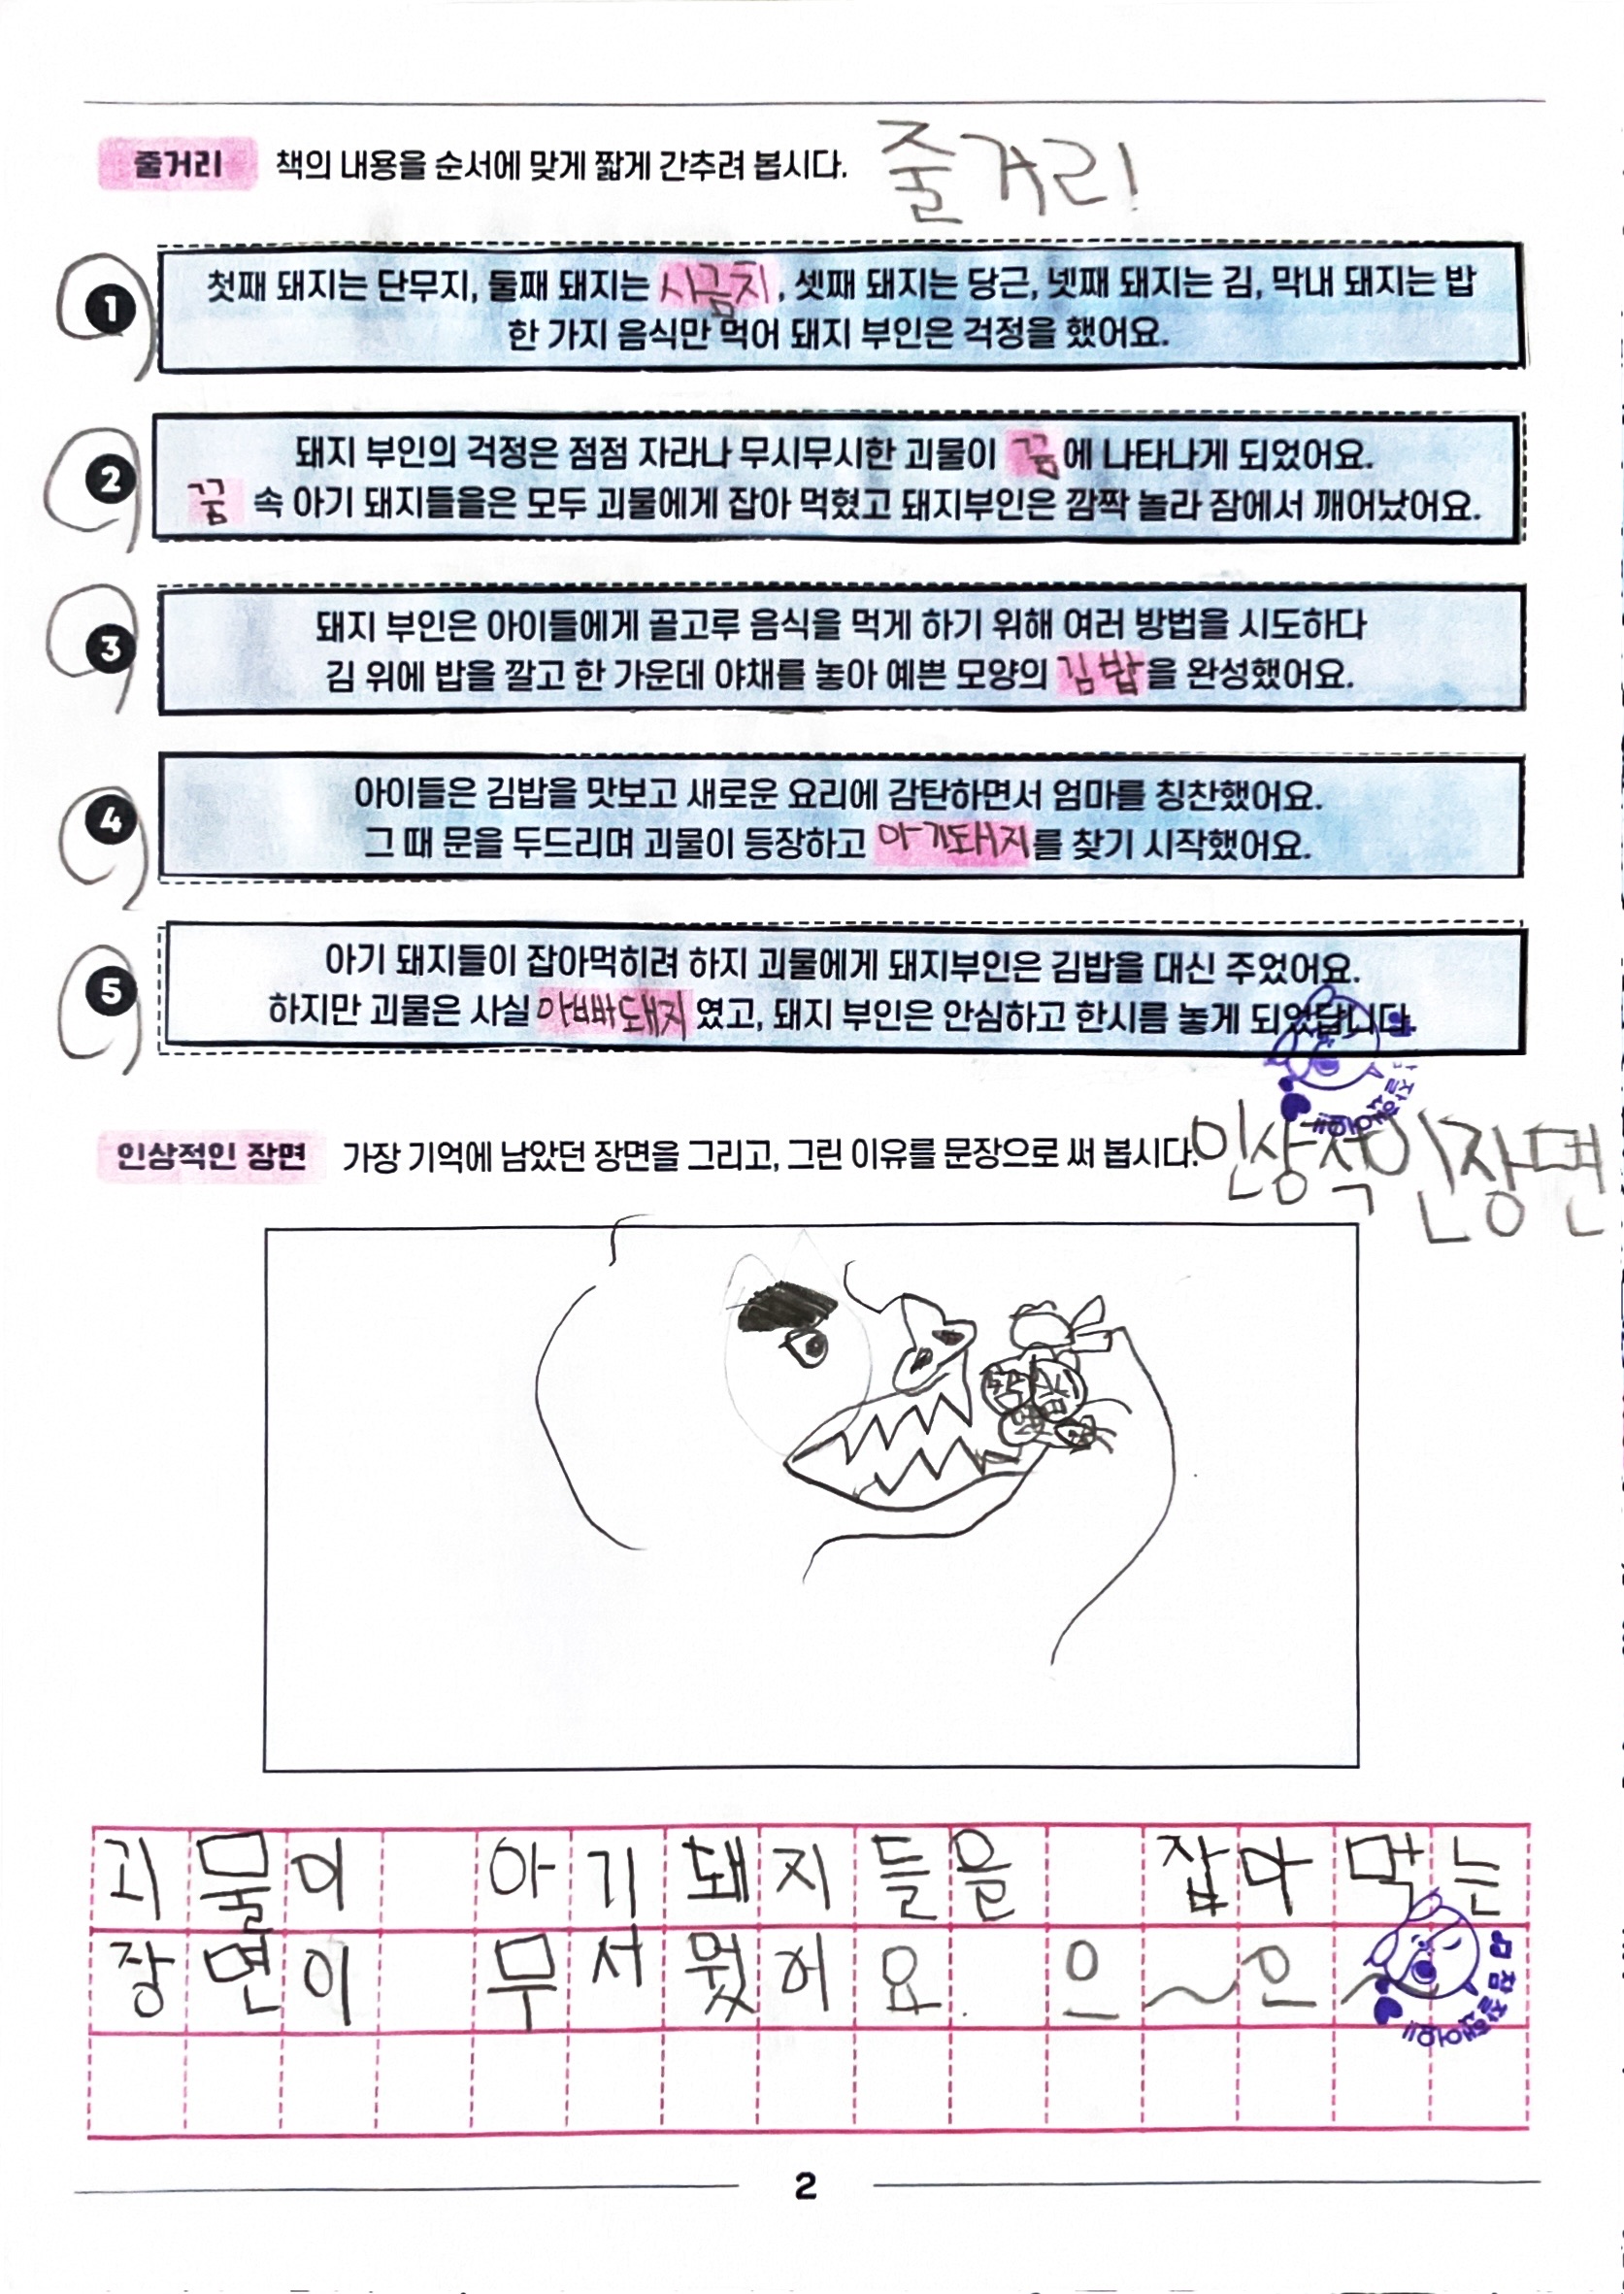 줄거리 책의 내용을 순서에 맞게 짧게 간추려 봅시다. 줄거리!
1 첫째 돼지는 단무지, 둘째 돼지는 시금치, 셋째 돼지는 당근, 넷째 돼지는 김, 막내 돼지는 밥
한 가지 음식만 먹어 돼지 부인은 걱정을 했어요.
2 돼지 부인의 걱정은 점점 자라나 무시무시한 괴물이 꿈에 나타나게 되었어요.
꿈 속 아기 돼지들을은 모두 괴물에게 잡아 먹혔고 돼지부인은 깜짝 놀라 잠에서 깨어났어요.
3 돼지 부인은 아이들에게 골고루 음식을 먹게 하기 위해 여러 방법을 시도하다
김 위에 밥을 깔고 한 가운데 야채를 놓아 예쁜 모양의 김밥을 완성했어요.
4 아이들은 김밥을 맛보고 새로운 요리에 감탄하면서 엄마를 칭찬했어요.
그 때 문을 두드리며 괴물이 등장하고 아기돼지를 찾기 시작했어요.
5 아기 돼지들이 잡아먹히려 하지 괴물에게 돼지부인은 김밥을 대신 주었어요.
하지만 괴물은 사실 아빠돼지였고, 돼지 부인은 안심하고 한시름 놓게 되었답니다.
참 잘했어요!!
인상적인 장면 가장 기억에 남았던 장면을 그리고, 그린 이유를 문장으로 써 봅시다. 인상적인장면
괴물이 아기돼지들을 잡아먹는
장면이 무서웠어요. 으~으~
참 잘했어요!!
2